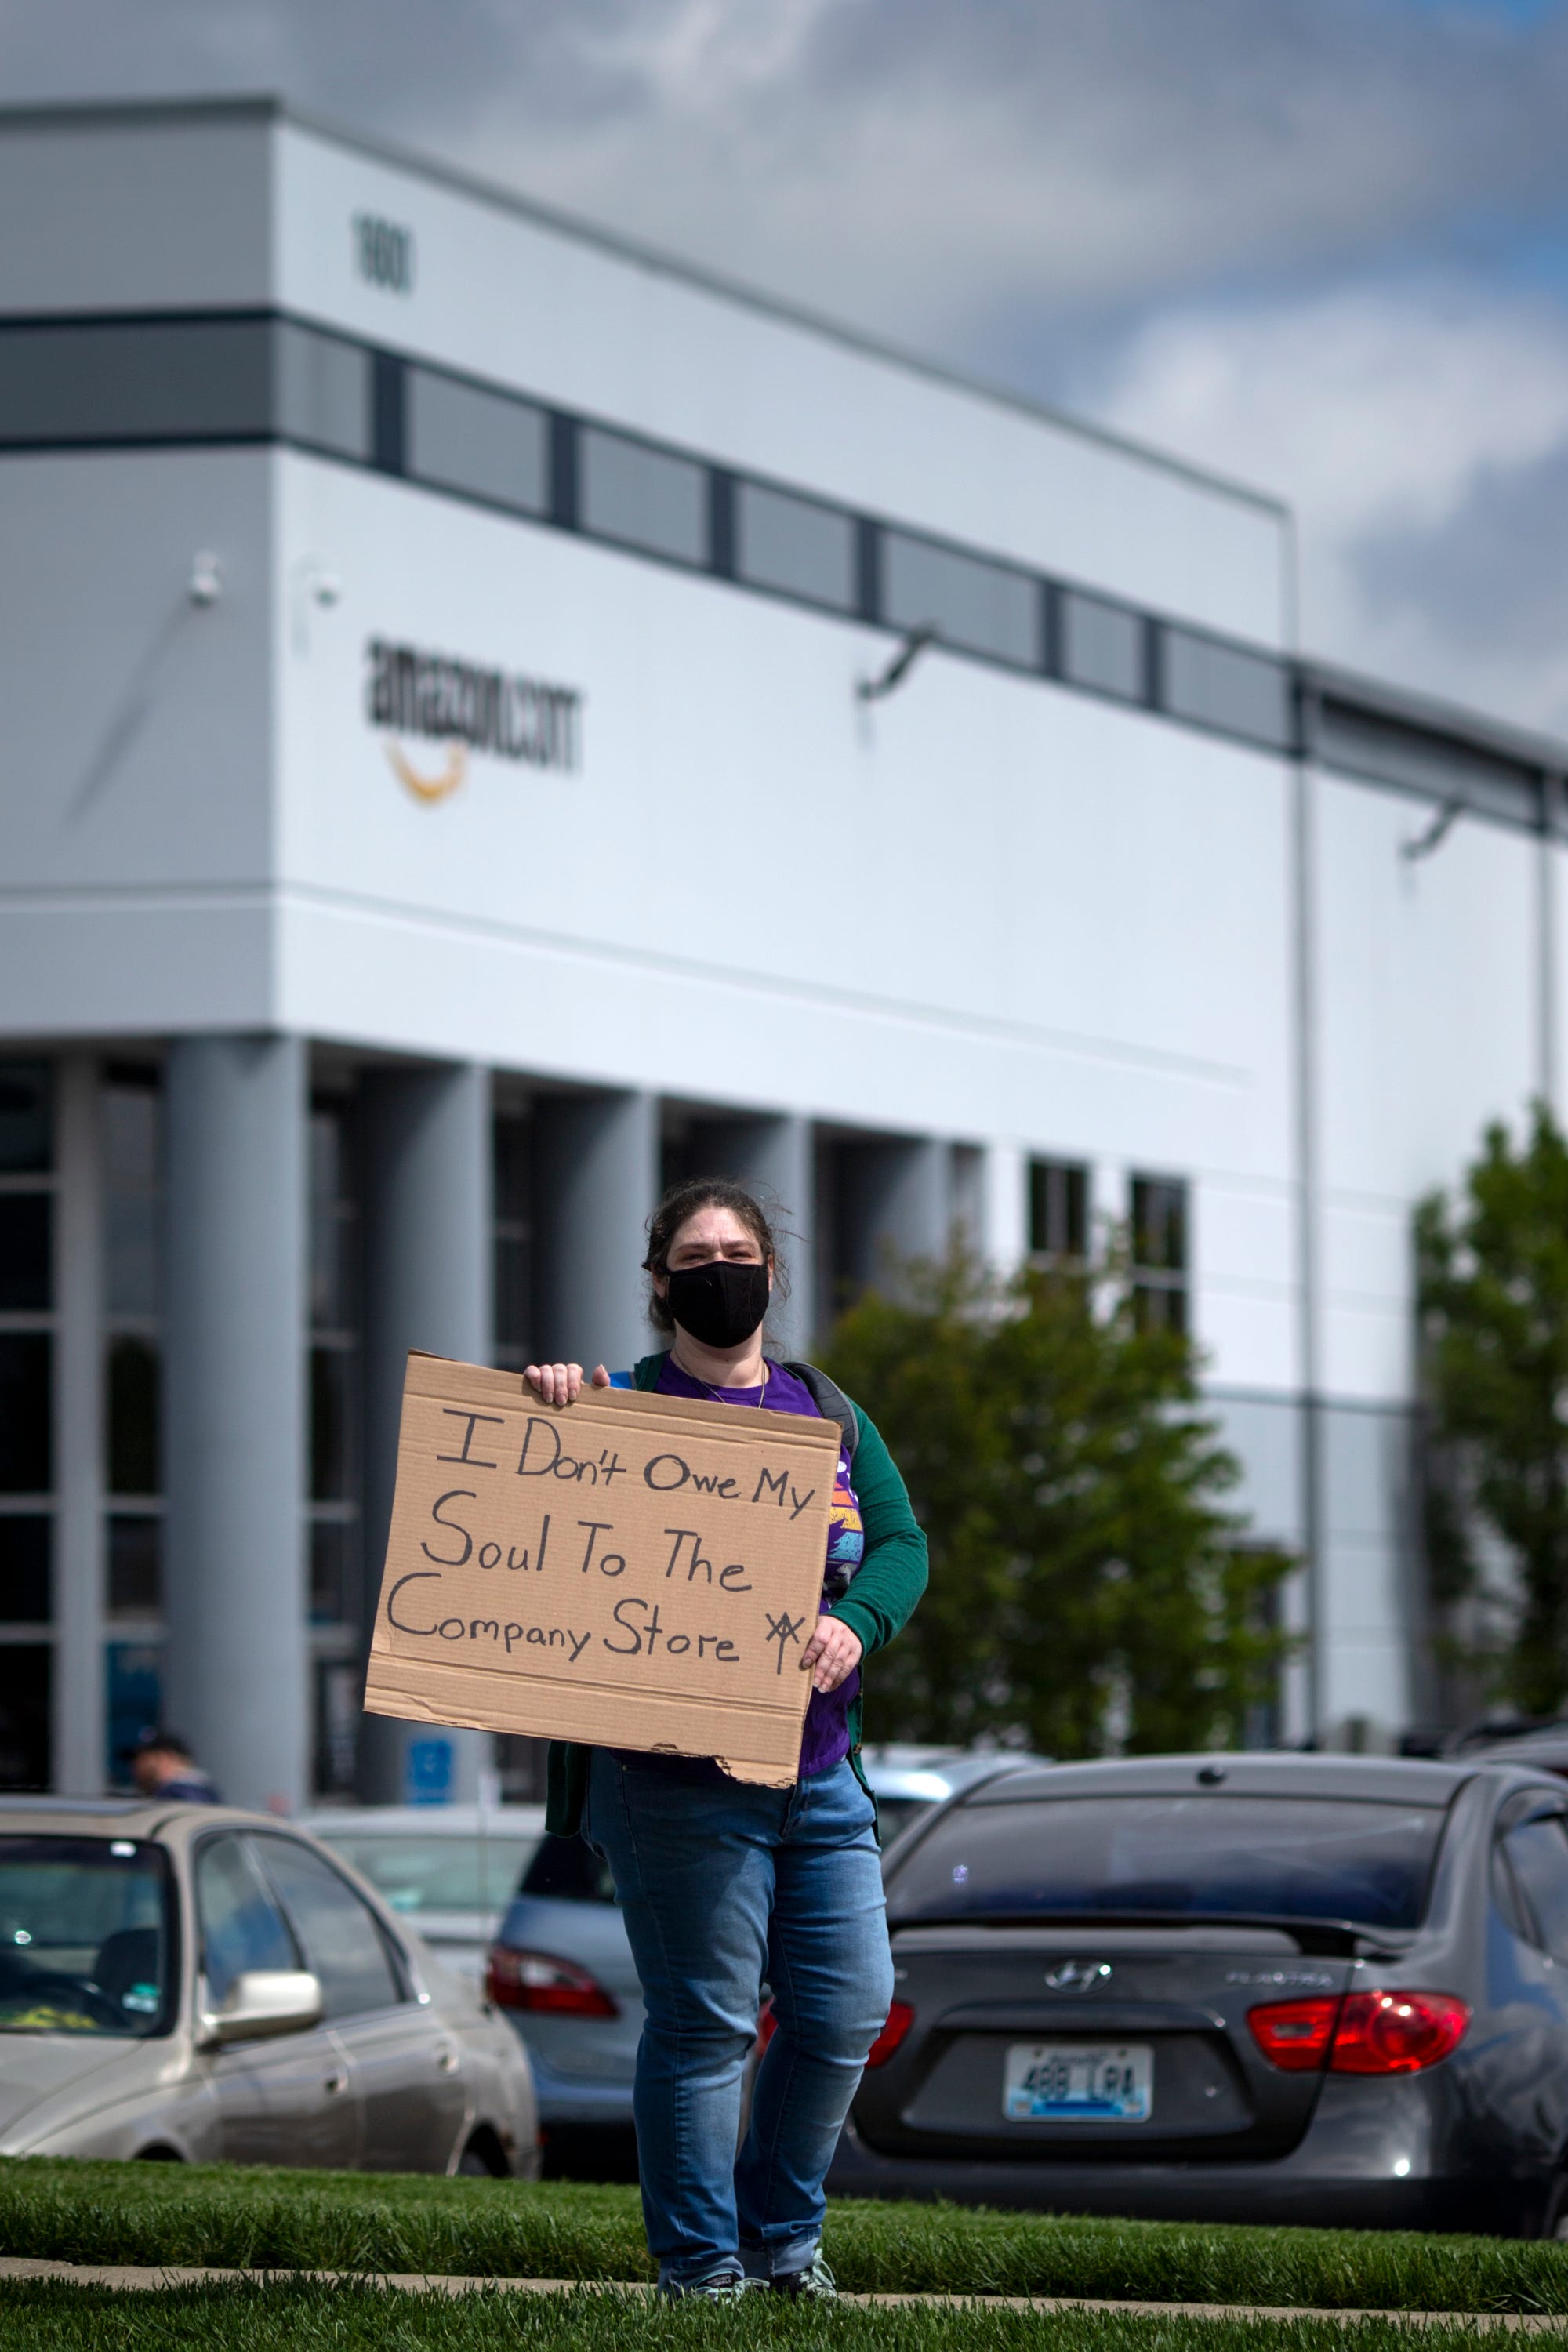 1600
amazon.com
I Don't Owe My
Soul To The
Company Store
ELANTRA
488 LRA